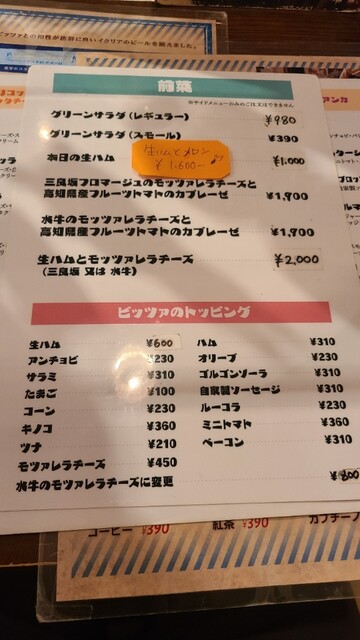 ピッツァとの相性が抜群に良いイタリアのビールを揃えました。
前菜
※サイドメニューのみのご注文はできません
グリーンサラダ(レギュラー) ¥980
グリーンサラダ(スモール) ¥390
生ハムとメロン
¥1,600-
本日の生ハム ¥1,000
三良坂フロマージュのモッツァレラチーズと
高知県産フルーツトマトのカプレーゼ ¥1,900
水牛のモッツァレラチーズと
高知県産フルーツトマトのカプレーゼ ¥1,900
生ハムとモッツァレラチーズ ¥2,000
(三良坂 又は 水牛)
ピッツァのトッピング
生ハム ¥600 ハム ¥310
アンチョビ ¥230 オリーブ ¥230
サラミ ¥310 ゴルゴンゾーラ ¥310
たまご ¥100 自家製ソーセージ ¥310
コーン ¥230 ルーコラ ¥230
キノコ ¥360 ミニトマト ¥360
ツナ ¥210 ベーコン ¥310
モッツァレラチーズ ¥450
水牛のモッツァレラチーズに変更 ¥800
コーヒー ¥390 紅茶 ¥390 カプチーノ